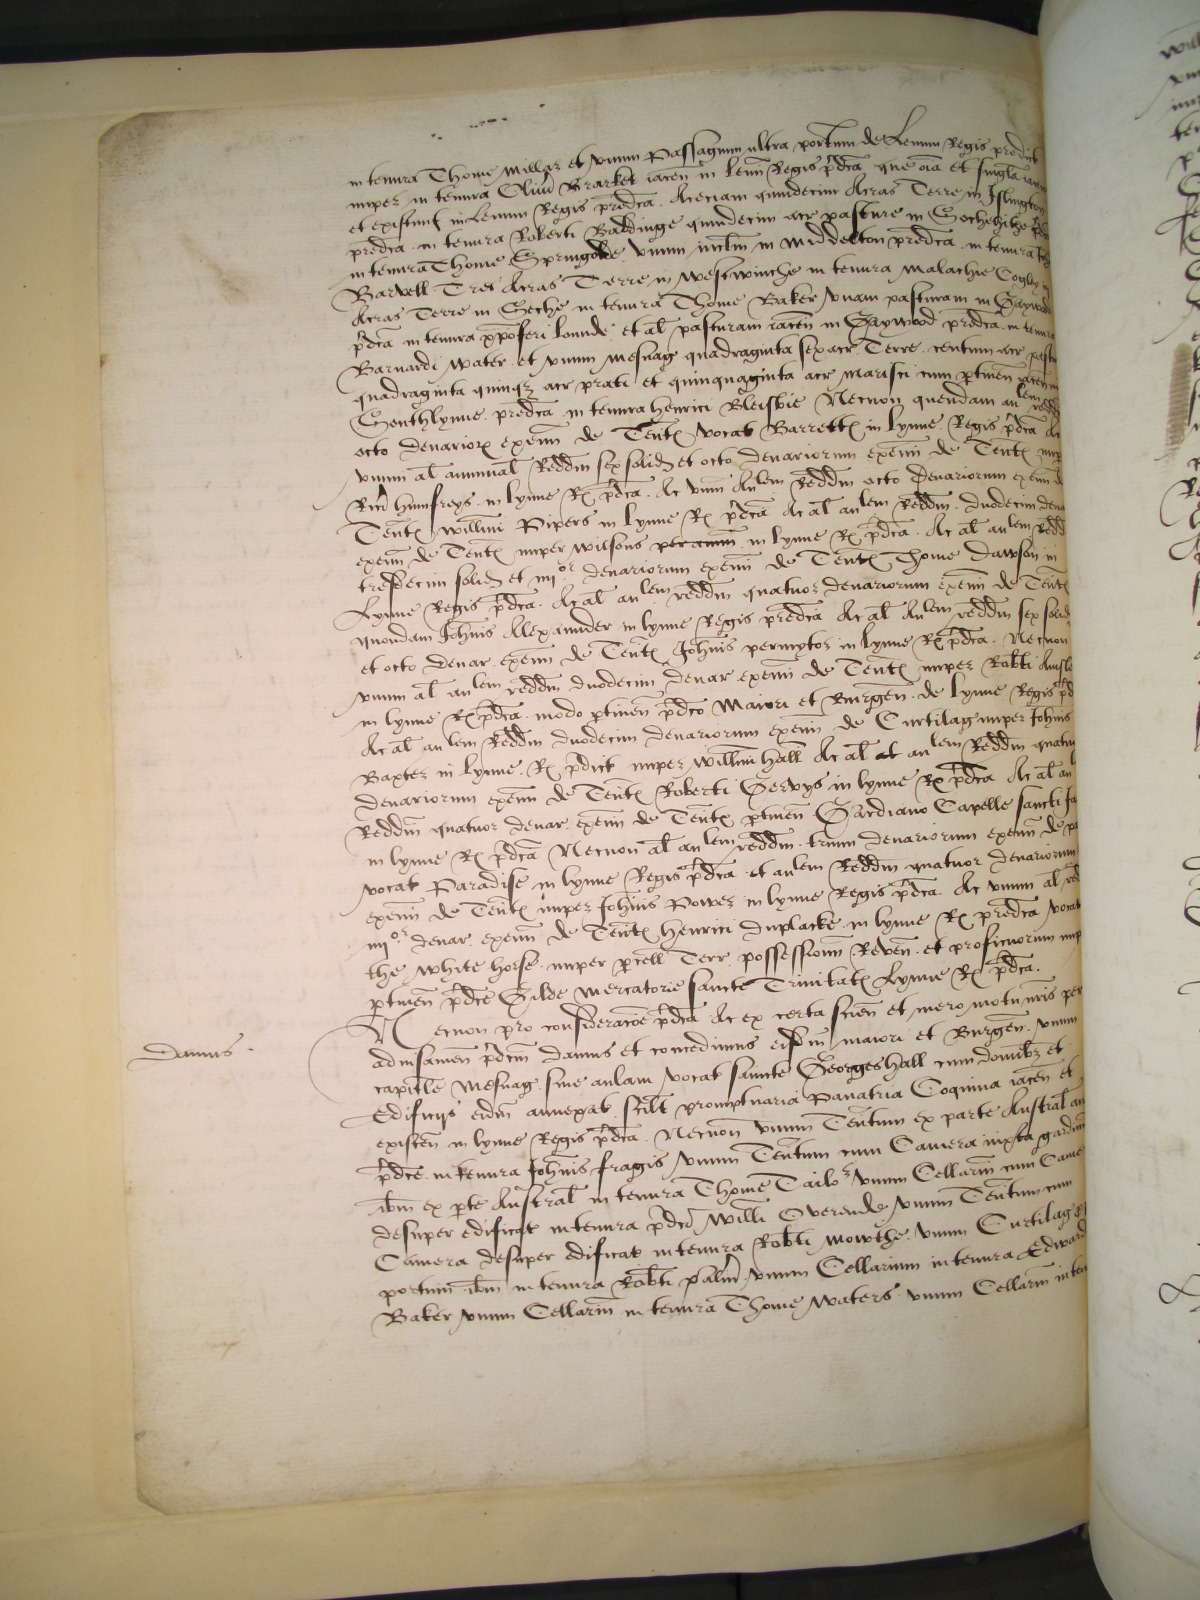 in tenura Thome Millar et vnum Passagium ultra portum de Lenun Regis predict
nuper in tenura Oliui Brarket iacen in Lenn Regis pdca que oia et singla
et existunt in Lenun Regis predca . Aceciam quindecim Acras Terre in Islington
predca in tenura Roberti Baldinge quindecim acr pasture in Sechehithe
in tenura Thome Springolde vnum in Middelton predca in tenura
Barvell Tres Acras Terre in Westwinche in tenura Malachie Cogley
Acras Terre in Seche in tenura Thome Baker vnam pasturam in Gaywod
pdca in tenura xpoferi Lounde et al pasturam iacen in Gaywood predca in tenura
Barnardi Water et vnum Mesuag quadraginta sex acr Terre centum acr
quadraginta quinq acr prati et quinquaginta acr Marisci cum ptinen iacen in
Southlynne predca in tenura Henrici Bleisbie Necnon quendam anlem redd
octo denarior exeun de Tent vocat Barrett in Lynne Regis pdca Ac
vnum al annual Reddm sex solid et octo denariorum exeun de Tent nup
Rici Humfreys in Lynne R pdca . Ac vnu Anlem Reddm octo denariorum exeun
Tent Willmi Pipers in Lynne R pdca Ac al anlem Reddm duodecim dena
exeun de Tent nuper Wilsons in Lynne R pdca . Ac al anlem Redd
tresdecim solid et iiijor denariorum exeun de Tent Thome Dawson in
Lynne Regis pdca . Ac al anlem reddm quatuor denariorum exeun de Tent
quondam Johnis Allexannder in Lynne Regis predca Ac al Anlem reddm sex solid
et octo denar exeun de Tent Johnis in Lynne R pdca . Necnon
vnum al anlem reddm duodecim denar exeun de Tent nuper Robti
in Lynne R pdca modo ptinen pdco Maiori et Burgen de Lynne Regis pd
Ac al anlem Reddm duodecim denariorum exeun de Curtilag nuper Johnis
Baxter in Lynne R pdict nuper Willmi Hall Ac al et anlem Reddm quatu
denariorum exeun de Tent Roberti Gervys in Lynne R pdca Ac al an
Reddm quatuor denar exeun de Tent ptinen Gardiano Capelle sancti Ja
in Lynne R pdca Necnon al anlem reddm trium denariorum exeun de
vocat Paradise in Lynne Regis pdca et anlem Reddm quatuor denariorum
exeun de Tent nuper Johnis Power in Lynne Regis pdca . Ac vnum al red
iiijor denar exeun de Tent Henrici Duplacke in Lynne R predca vocat
the White Horse nuper pcell Terr possessionu Reven et proficuorum nup
ptinen pdce Gilde mercatorie sancte Trinitat Lynne R pdca .
Necnon pro consideracoe pdca Ac ex certa scien et mero motu nris per
Damus .
aduisamen pdcm damus et concedimus eisdm maiori et Burgen vnum
capitle Mesuag siue aulam vocat sancte Georges Hall cum domibz et
Edificijs eidm annexat scilt promptuaria Panatria Coquina iacen et
existen in Lynne Regis pdca . Necnon vnum Tentum ex parte Austral
pdce in tenura Johnis Fragis vnum Tentum cum Camera iuxta gardinu
ibm ex pte Austral in tenura Thome Tailor vnum Cellariu cum Came
desuper edificat in tenura pdci Willi Overende vnum Tentum cum
Camera desuper edificat in tenura Robti Mowthe vnum Curtilag
portum ibm in tenura Robti Palmr vnum Cellarium in tenura Edward
Baker vnum Cellariu in tenura Thome Waters vnum Cellariu in ten